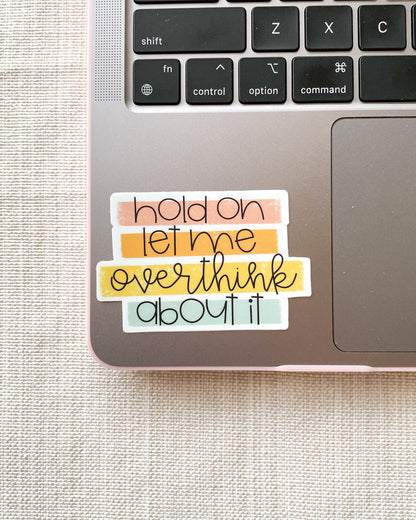 shift
Z
X
C
fn
control
option
command
hold on
let me
overthink
about it